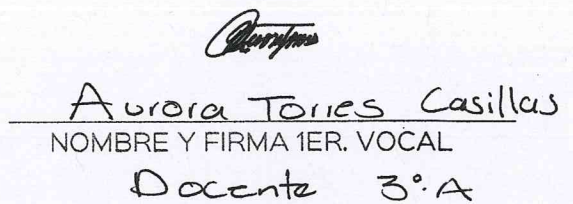 Aurora Torres Casillas
NOMBRE Y FIRMA 1ER. VOCAL
Docente 3°.A